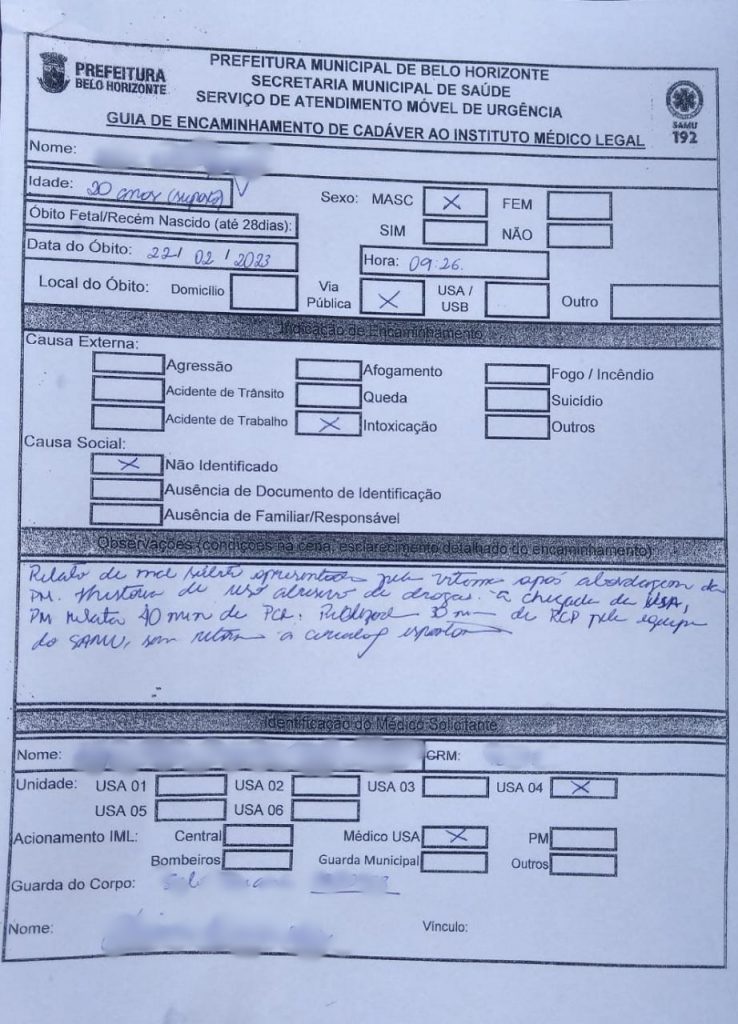 PREFEITURA BELO HORIZONTE
PREFEITURA MUNICIPAL DE BELO HORIZONTE
SECRETARIA MUNICIPAL DE SAÚDE
SERVIÇO DE ATENDIMENTO MÓVEL DE URGÊNCIA
GUIA DE ENCAMINHAMENTO DE CADÁVER AO INSTITUTO MÉDICO LEGAL
SAMU 192
Nome:
Idade: 20 anos Sexo: MASC X FEM
Óbito Fetal/Recém Nascido (até 28dias): SIM NÃO
Data do Óbito: 22/ 02 / 2023 Hora: 09:26
Local do Óbito: Domicílio Via Pública X USA / USB Outro
Indicação de Encaminhamento
Causa Externa:
Agressão Afogamento Fogo / Incêndio
Acidente de Trânsito Queda Suicídio
Acidente de Trabalho X Intoxicação Outros
Causa Social:
X Não Identificado
Ausência de Documento de Identificação
Ausência de Familiar/Responsável
Observações (condições na cena, esclarecimento detalhado do encaminhamento)
Relato de mal súbito apresentado pela vítima após abordagem da
PM. História de uso abusivo de drogas. à chegada da USA,
PM relata 40 min de PCR. 30 min de RCP pela equipe
do SAMU, sem retorno a
Identificação do Médico Solicitante
Nome: CRM:
Unidade: USA 01 USA 02 USA 03 USA 04 X
USA 05 USA 06
Acionamento IML: Central Médico USA X PM
Bombeiros Guarda Municipal Outros
Guarda do Corpo:
Nome: Vínculo: